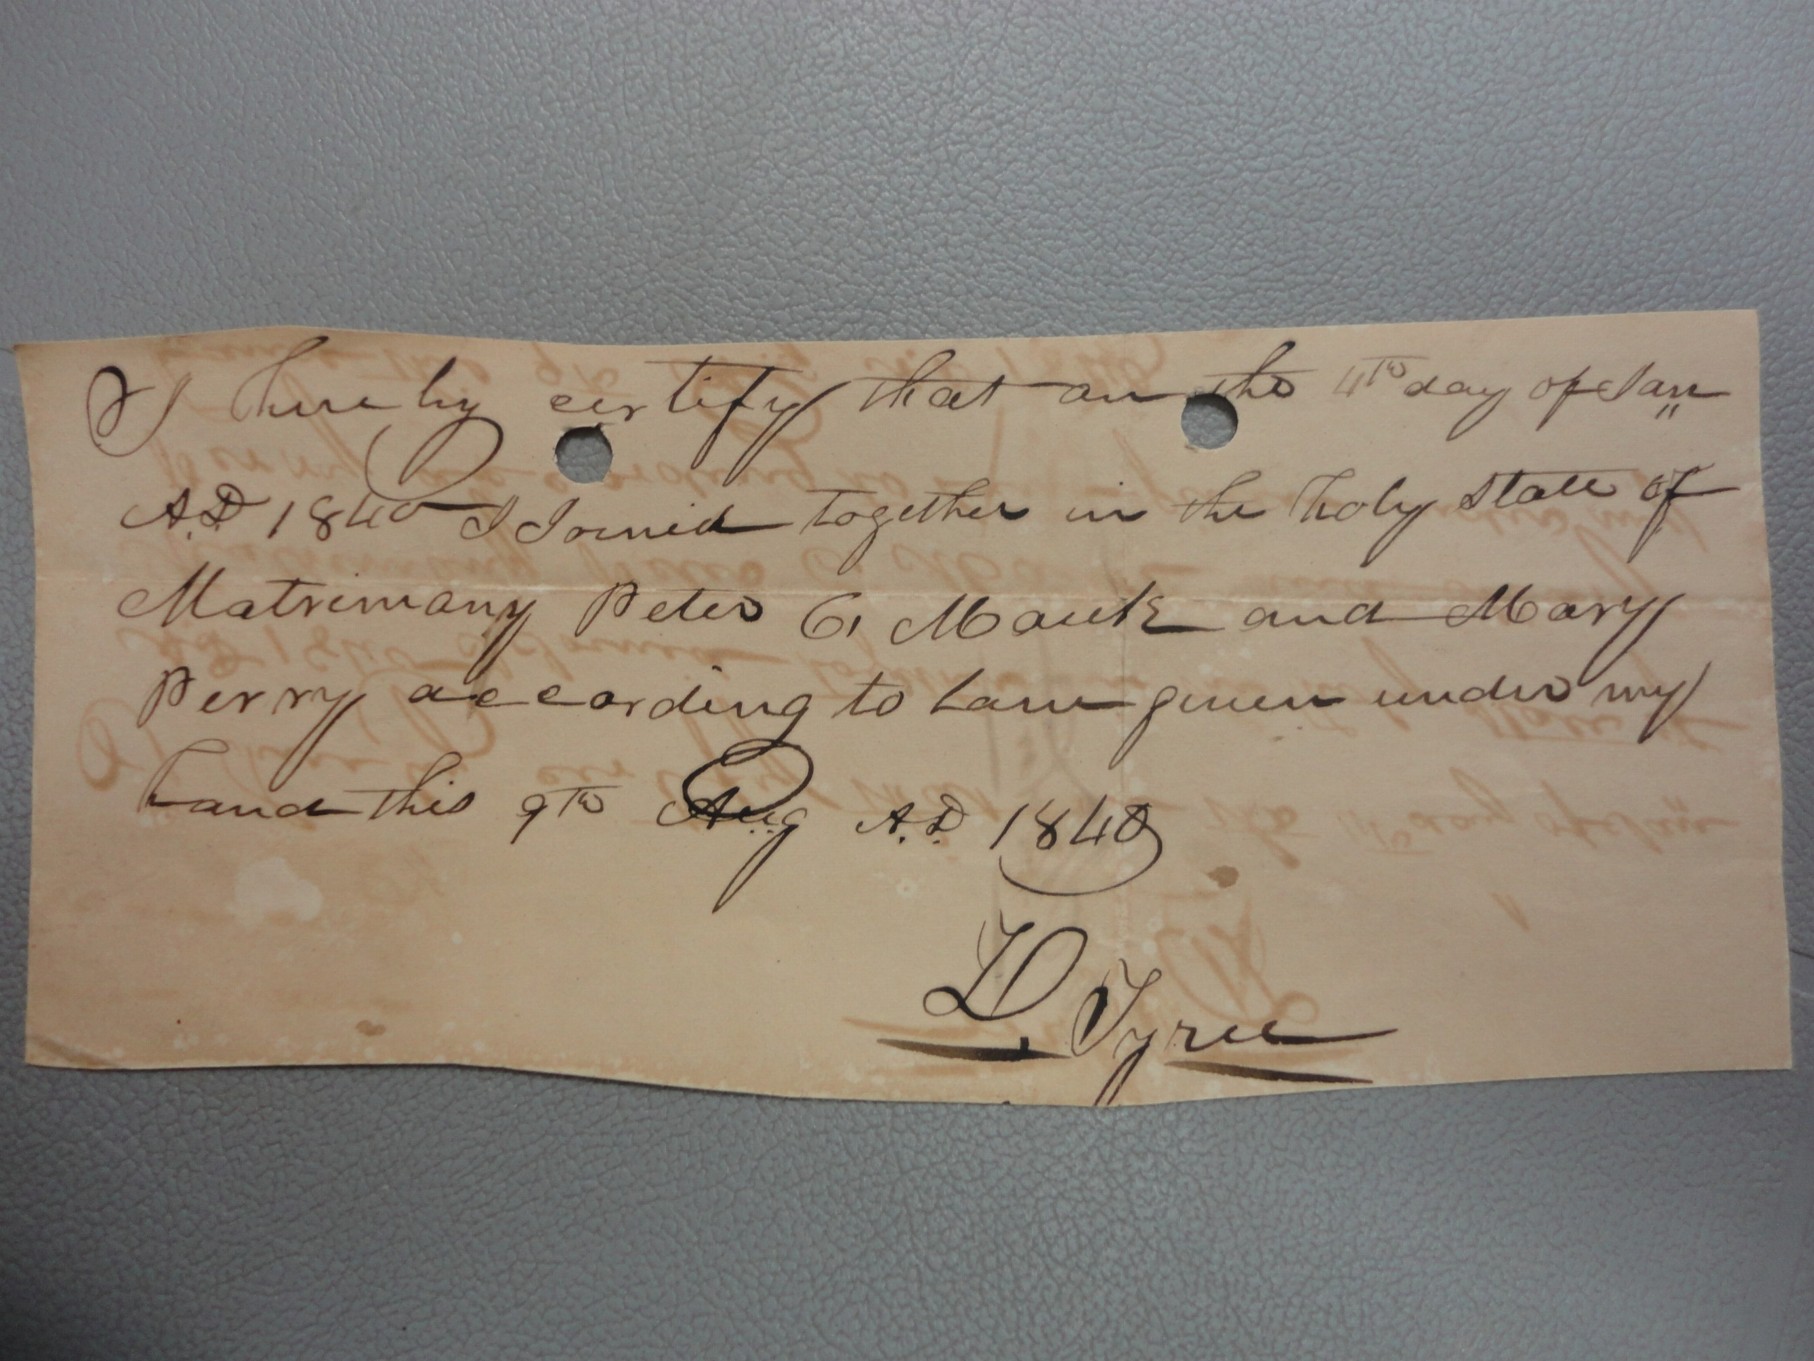 I hereby certify that on the 4th day of Jan
A.D 1840 I Joined together in the holy state of
Matrimony Peter C. Mauk and Mary
Perry according to Law given under my
hand this 9th Aug A.D. 1840
D. Tyree